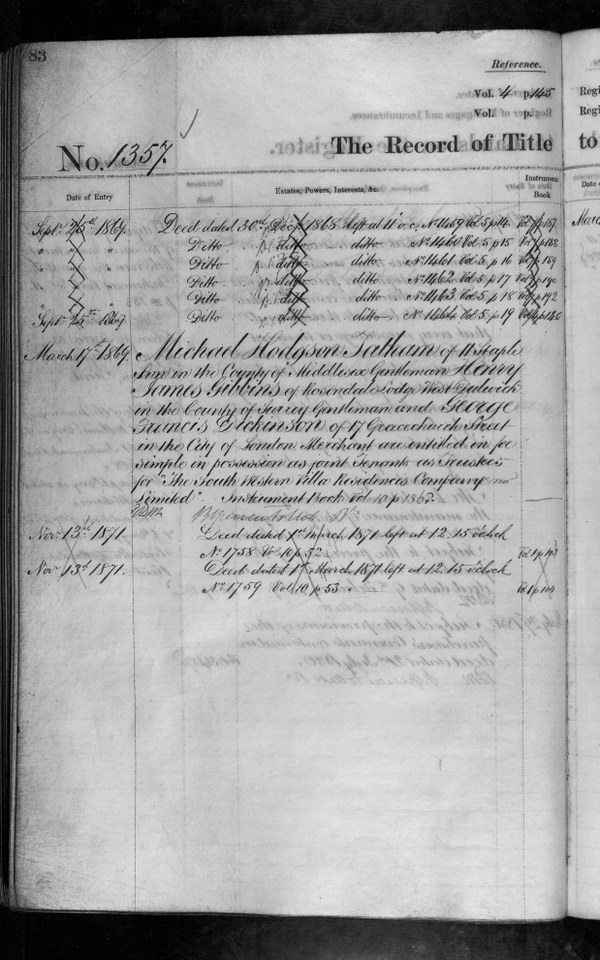 83
Reference.
Vol. 4 p. 145
Vol. p.
The Record of Title
No. 1357.
Date of Entry
Estates, Powers, Interests, &c.
Instrument Book
Septr 25th 1869 Deed dated 30th Decr 1868 left at 11 o'c, No 1459 Vol. 5 p 14 Vol 7 p 187
" " " Ditto ditto ditto No 1460 Vol. 5 p 15 Vol 7 p 188
" " " Ditto ditto ditto No 1461 Vol. 5 p 16 Vol 7 p 189
" " " Ditto ditto ditto No 1462 Vol. 5 p 17 Vol 7 p 190
" " " Ditto ditto ditto No 1463 Vol. 5 p 18 Vol 7 p 192
Septr 25th 1869 Ditto ditto ditto No 1464 Vol. 5 p 19 Vol p 140
March 17th 1869. Michael Hodgson Tatham of 11 Staple
Inn in the County of Middlesex Gentleman Henry
James Gibbins of Rosendale Lodge West Dulwich
in the County of Surrey Gentleman and George
Francis Dickinson of 17 Gracechurch Street
in the City of London Merchant are entitled in fee
simple in possession as joint Tenants as Trustees
for "The South Western Villa Residences Company
Limited". Instrument Book Vol. 10 p 1863.
Novr 13th 1871. Deed dated 1st March 1871 left at 12.15 o'clock
No 1758 Vol 10 p 52 Vol 1 p 103
Novr 13th 1871. Deed dated 1st March 1871 left at 12.15 o'clock
No 1759 Vol. 10 p 53. Vol 1 p 104
Regi
Regi
to
Date o
March